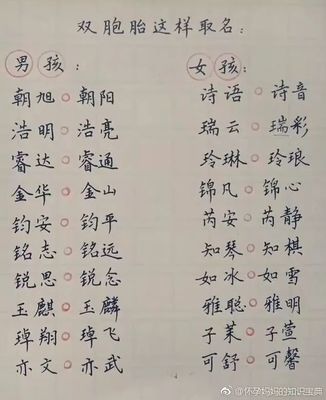 双胞胎这样取名:
男孩: 女孩:
朝旭 朝阳 诗语 诗音
浩明 浩亮 瑞云 瑞彩
睿达 睿通 玲琳 玲琅
金华 金山 锦凡 锦心
钧安 钧平 芮安 芮静
铭志 铭远 知琴 知棋
锐思 锐念 如冰 如雪
玉麒 玉麟 雅聪 雅明
琸翔 琸飞 子茉 子萱
亦文 亦武 可舒 可馨
@怀孕妈妈的知识宝典